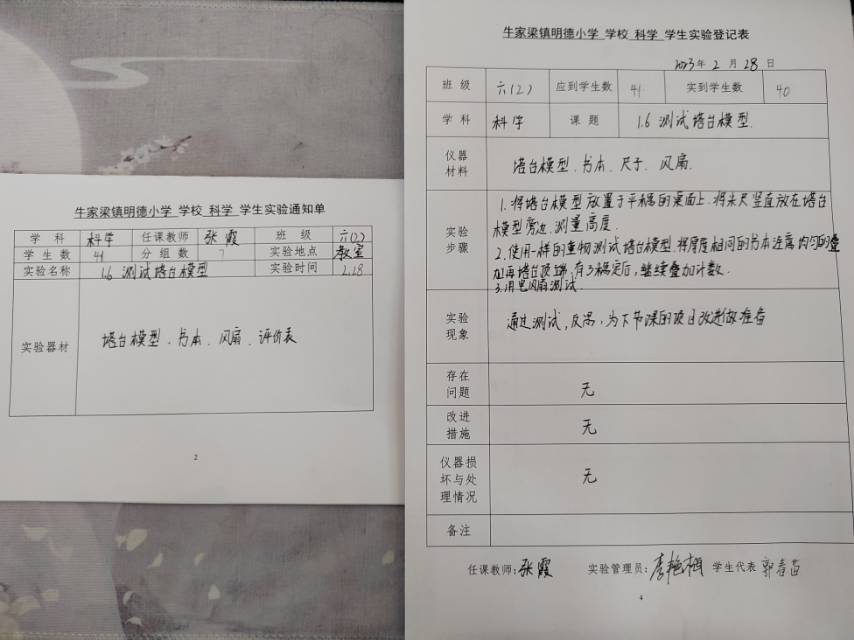 牛家梁镇明德小学 学校 科学 学生实验通知单
学科 科学 任课教师 张霞 班级 六(2)
学生数 41 分组数 7 实验地点 教室
实验名称 1.6 测试塔台模型 实验时间 2.28
实验器材 塔台模型、书本、风扇、评价表
2
牛家梁镇明德小学 学校 科学 学生实验登记表
2023年 2 月 28 日
班级 六(2) 应到学生数 41 实到学生数 40
学科 科学 课题 1.6 测试塔台模型
仪器材料 塔台模型、书本、尺子、风扇
实验步骤
1. 将塔台模型放置于平稳的桌面上,将米尺竖直放在塔台
模型旁边,测量高度.
2. 使用一样的重物测试塔台模型,将厚度相同的书本逐渐均匀的叠
加再塔台顶端,有3稳定后,继续叠加计数.
3. 用电风扇测试.
实验现象 通过测试,反思,为下节课的项目改进做准备
存在问题 无
改进措施 无
仪器损坏与处理情况 无
备注
任课教师:张霞 实验管理员:李艳梅 学生代表 郭春苗
4